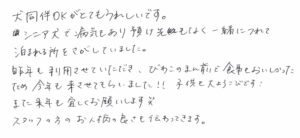 犬同伴OKがとてもうれしいです。
シニア犬で病気もあり預け先もなく一緒につれて
泊まれる所をさがしていました。
昨年も利用させていただき、びわこのまん前で食事もおいしかった
ため今年も来させてもらいました!! 子供も大よろこびです!
また来年も宜しくお願いします
スタッフの方のお人柄の良さも伝わってきます。